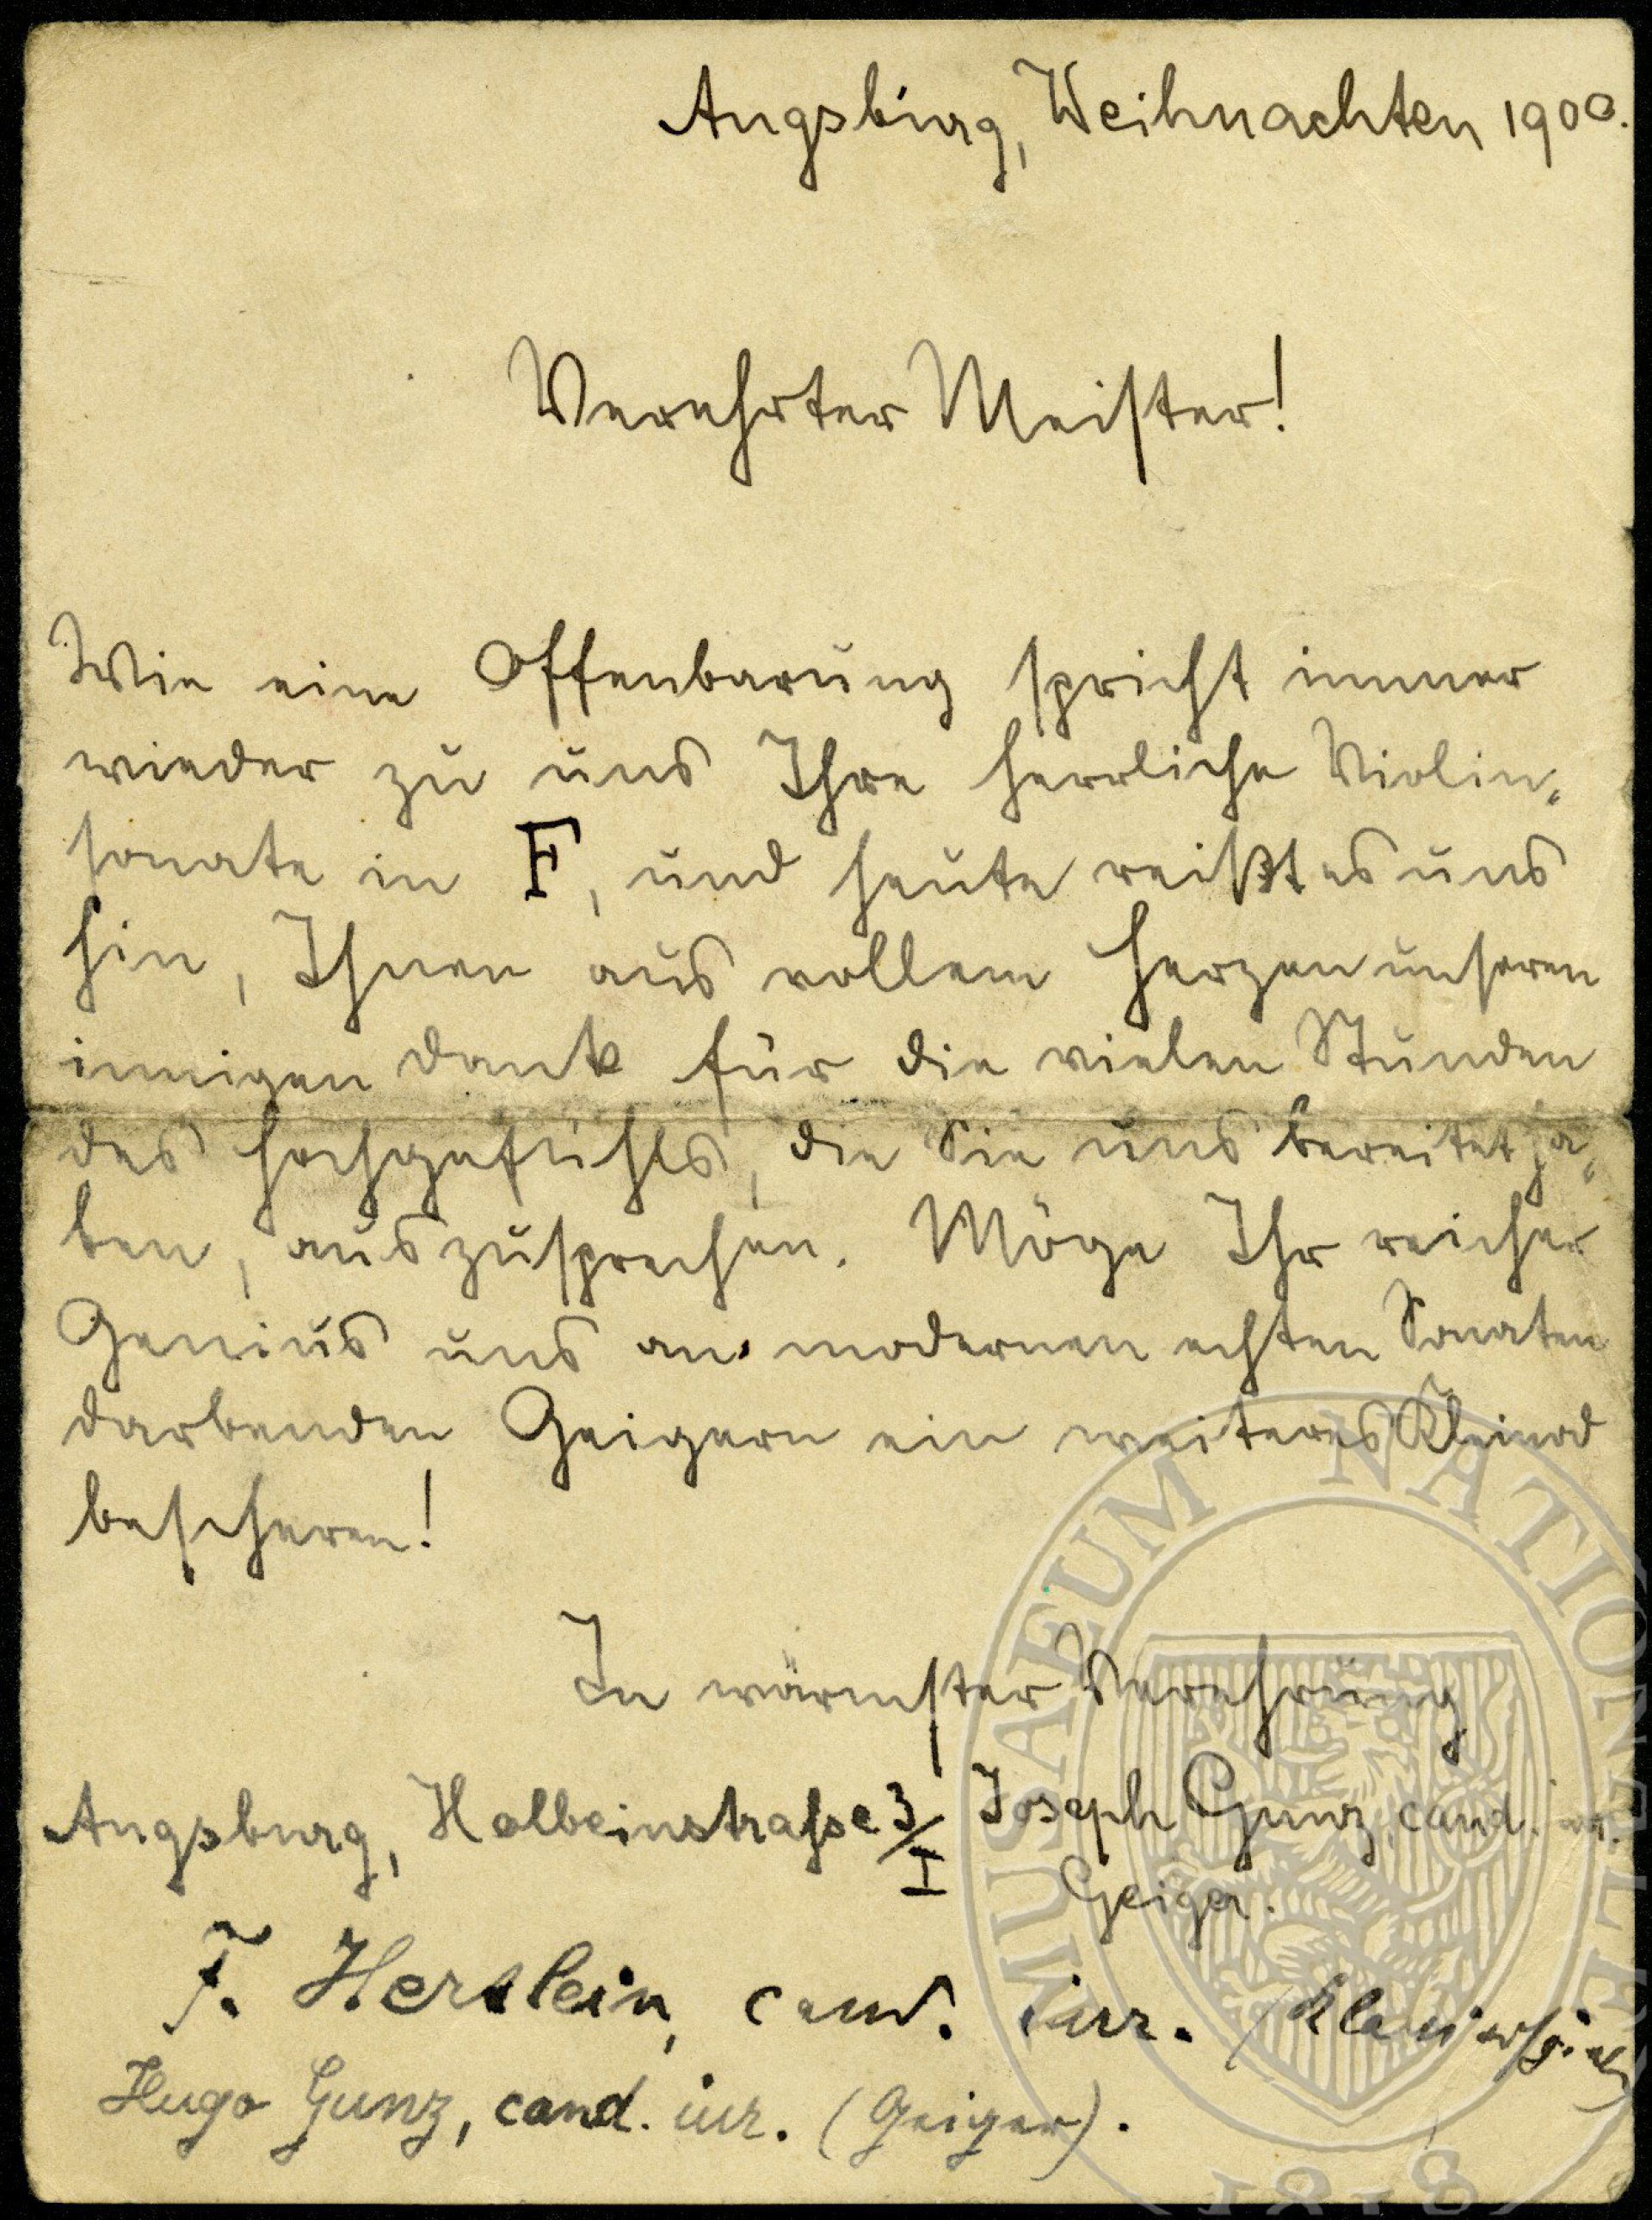 Augsburg, Weihnachten 1900.
Verehrter Meister!
Wie eine Offenbarung spricht immer
wieder zu uns Ihre herrliche Violin-
sonate in F, und heute reißt es uns
hin, Ihnen aus vollem Herzen unseren
innigen Dank für die vielen Stunden
des Hochgefühls, die Sie uns bereitet ha-
ben, auszusprechen. Möge Ihr reicher
Genius uns an modernen echten Sonaten
darbenden Geigern ein weiteres Kleinod
bescheren!
In wärmster Verehrung
Augsburg, Holbeinstrasse 3/I Joseph Gunz, cand. iur.
Geiger.
F. Herzlein, cand. iur. (Klavierspieler)
Hugo Gunz, cand. iur. (Geiger).
MUSAEUM NATIONALE
1818